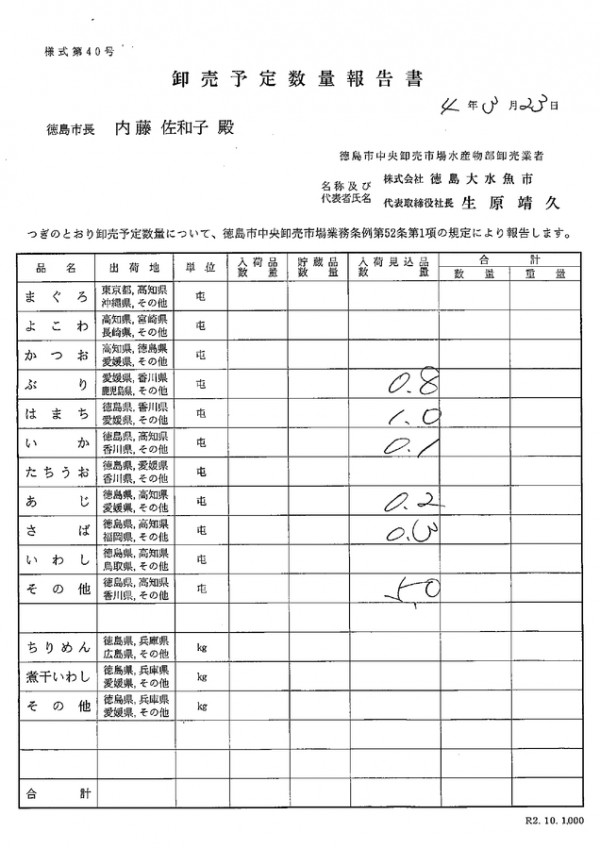 様式第40号
卸売予定数量報告書
4年3月23日
徳島市長 内藤 佐和子 殿
徳島市中央卸売市場水産物部卸売業者
名称及び 株式会社 徳島大水魚市
代表者氏名 代表取締役社長 生原靖久
つぎのとおり卸売予定数量について、徳島市中央卸売市場業務条例第52条第1項の規定により報告します。
品名 出荷地 単位 入荷品数量 貯蔵品数量 入荷見込品数量 合計
数量 重量
まぐろ 東京都, 高知県 屯
沖縄県, その他
よこわ 高知県, 宮崎県 屯
長崎県, その他
かつお 高知県, 徳島県 屯
愛媛県, その他
ぶり 愛媛県, 香川県 屯 0.8
鹿児島県, その他
はまち 徳島県, 香川県 屯 1.0
愛媛県, その他
いか 徳島県, 高知県 屯 0.1
香川県, その他
たちうお 徳島県, 愛媛県 屯
香川県, その他
あじ 徳島県, 高知県 屯 0.2
愛媛県, その他
さば 徳島県, 高知県 屯 0.3
福岡県, その他
いわし 徳島県, 高知県 屯
鳥取県, その他
その他 徳島県, 高知県 屯 5.0
香川県, その他
ちりめん 徳島県, 兵庫県 kg
広島県, その他
煮干いわし 徳島県, 兵庫県 kg
愛媛県, その他
その他 徳島県, 兵庫県 kg
愛媛県, その他
合計
R2. 10. 1,000